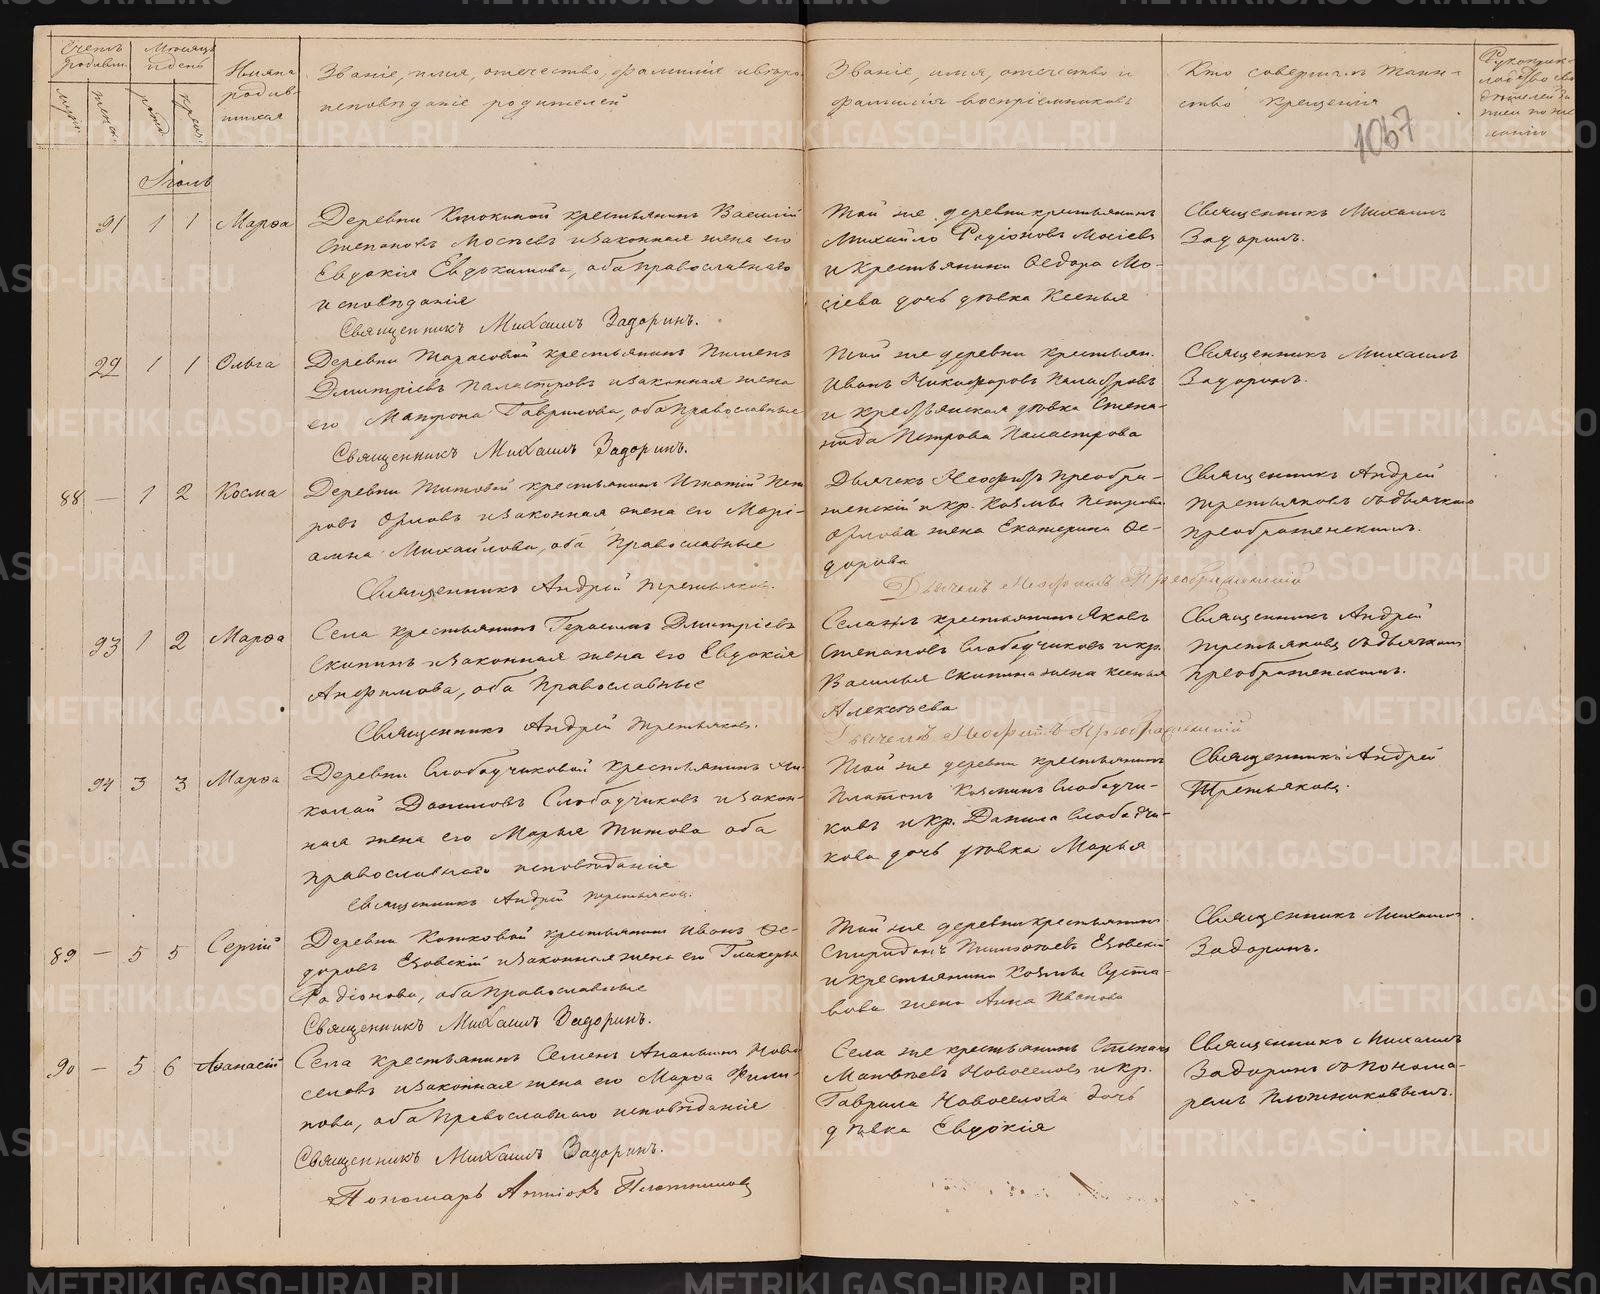 Счетъ родивш.
Мѣсяцъ и день
муж.
женс.
рожд.
крещ.
Имяна родив-
шихся
Званіе, имя, отечество, фамилія и вѣро-
исповѣданіе родителей
Званіе, имя, отечество и
фамилія воспріемниковъ
Кто совершилъ таин-
ство крещенія
Рукоприк-
1067
Іюль
91 1 1 Марѳа
Деревни крестьянинъ Василій
Степановъ Мосѣевъ и законная жена его
Евдокія Евдокимова, оба православнаго
исповѣданія
Священникъ Михаилъ Задоринъ.
Той же деревни крестьянинъ
Михайло Родіоновъ Мосіевъ
и крестьянина Ѳедора Мо-
сіева дочь дѣвка Ксенья
Священникъ Михаилъ
Задоринъ.
92 1 1 Ольга
Деревни Тарасовой крестьянинъ Пименъ
Дмитріевъ Паластровъ и законная жена
его Матрона Гаврилова, оба православные
Священникъ Михаилъ Задоринъ.
Той же деревни крестьян.
Иванъ Никифоровъ Паластровъ
и крестьянская дѣвка Степа-
нида Петрова Паластрова
Священникъ Михаилъ
Задоринъ.
88 — 1 2 Косма
Деревни Титовой крестьянинъ Игнатій Пет-
ровъ Орловъ и законная жена его Марі-
амна Михайлова, оба православные
Священникъ Андрей Третьяковъ.
Дьячекъ Неофитъ Преобра-
женскій и кр. Козьмы Петрова
Орлова жена Екатерина Ѳе-
дорова
Дьячекъ Неофитъ Преображенскій
Священникъ Андрей
Третьяковъ съ дьячкомъ
Преображенскимъ.
93 1 2 Марѳа
Села крестьянинъ Герасимъ Дмитріевъ
Скопинъ и законная жена его Евдокія
Анфимова, оба православные
Священникъ Андрей Третьяковъ.
Села крестьянинъ Яковъ
Степановъ Слободчиковъ и кр.
Василья Скопина жена Ксенья
Алексѣева
Дьячекъ Неофитъ Преображенскій
Священникъ Андрей
Третьяковъ съ дьячкомъ
Преображенскимъ.
94 3 3 Марѳа
Деревни Слободчиковой крестьянинъ Ни-
колай Даниловъ Слободчиковъ и закон-
ная жена его Марья Титова оба
православнаго исповѣданія
Священникъ Андрей Третьяковъ.
Той же деревни крестьянинъ
Платонъ Козминъ Слободчи-
ковъ и кр. Данила Слободчи-
кова дочь дѣвка Марья
Священникъ Андрей
Третьяковъ.
89 — 5 5 Сергій
Деревни Котковой крестьянинъ Иванъ Ѳе-
доровъ Езовскій и законная жена его Гликерья
Родіонова, оба православные
Священникъ Михаилъ Задоринъ.
Той же деревни крестьянинъ
Спиридонъ Тимофеевъ Езовскій
и крестьянина Козьмы Суста-
вова жена Анна Иванова
Священникъ Михаилъ
Задоринъ.
90 — 5 6 Аѳанасій
Села крестьянинъ Семенъ Ананьинъ Ново-
селовъ и законная жена его Марѳа Фили-
пова, оба православнаго исповѣданія
Священникъ Михаилъ Задоринъ.
Пономарь Антіохъ Плотниковъ
Села же крестьянинъ Степанъ
Матвѣевъ Новоселовъ и кр.
Гаврила Новоселова дочь
дѣвка Евдокія
Священникъ Михаилъ
Задоринъ съ понома-
ремъ Плотниковымъ.
METRIKI.GASO-URAL.RU